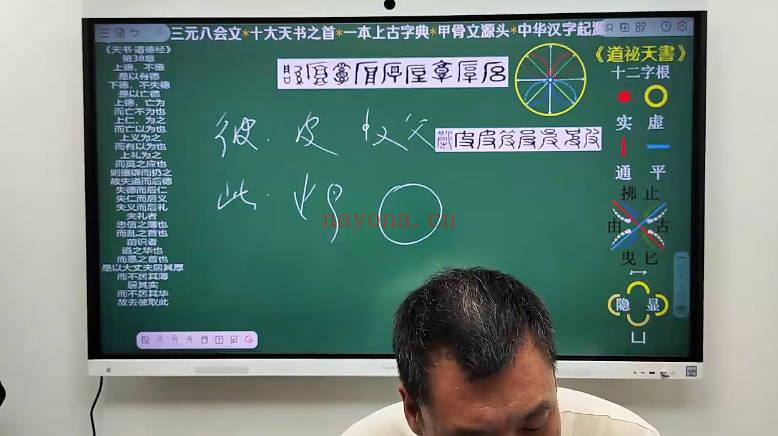 三元八会文*十大天书之首*一本上古字典*甲骨文源头*中华汉字起源
《天书·道德经》
第38章
上德，不德
是以有德
下德，不失德
是以亡德
上德，亡为
而亡不为也
上仁，为之
而亡以为也
上义为之
而有以为也
上礼为之
而莫之应也
则攘臂而扔之
故失道而后德
失德而后仁
失仁而后义
失义而后礼
夫礼者
忠信之薄也
而乱之首也
前识者
道之华也
而愚之首也
是以大丈夫居其厚
而不居其薄
居其实
而不居其华
故去彼取此
彼：皮
此：
nayona.cn
《道祕天書》
十二字根
实 虚
通 平
拂 止
由 古
曳 匕
隐 显